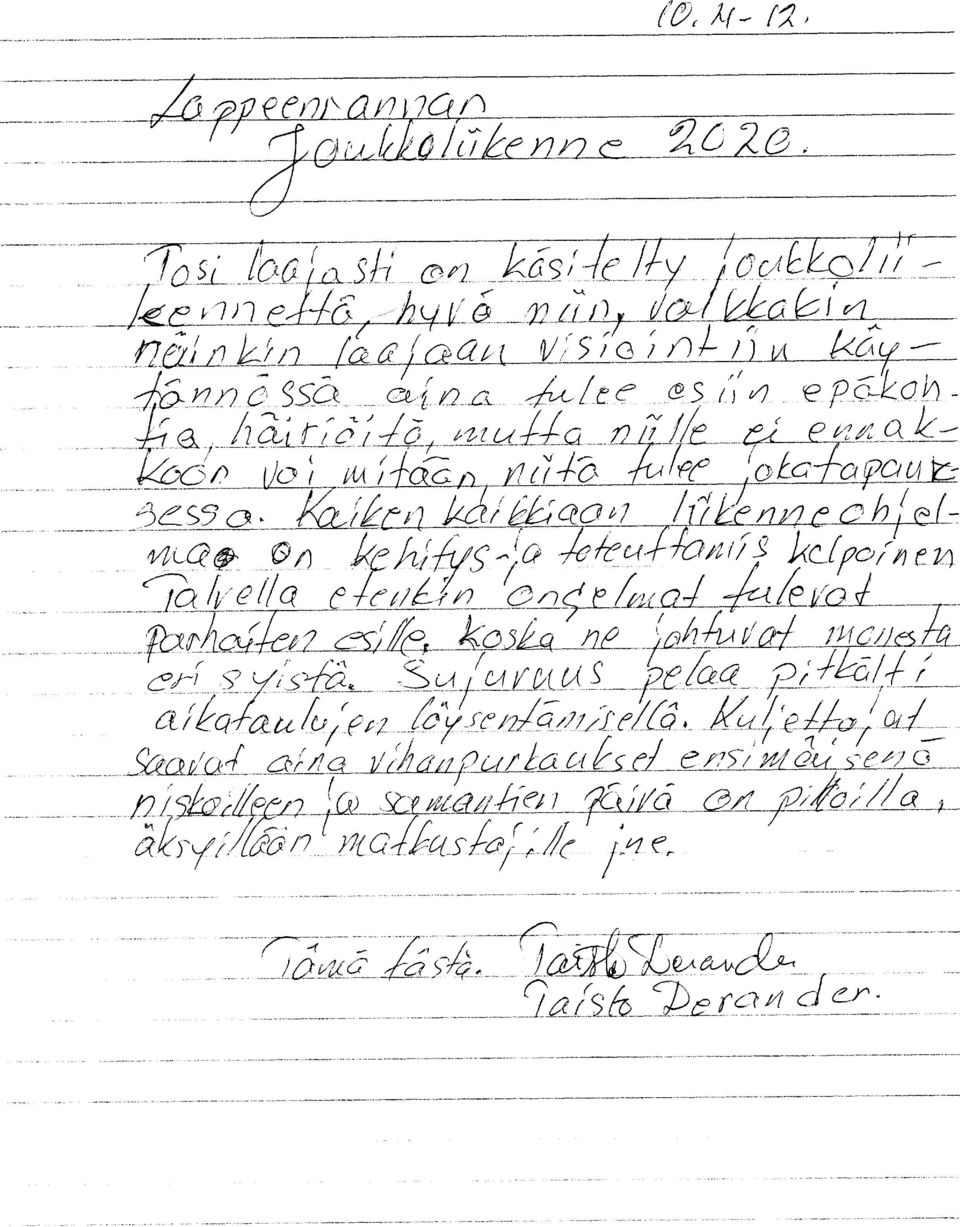 10.11-12.
Lappeenrannan
Joukkoliikenne 2020.
Tosi laajasti on käsitelty joukkolii-
kennettä, hyvä niin, vaikkakin
näinkin laajaan visiointiin käy-
tännössä aina tulee esiin epäkoh-
tia, häiriöitä, mutta niille ei ennak-
koon voi mitään, niitä tulee jokatapauk-
sessa. Kaiken kaikkiaan liikenneohjel-
maa on kehitys-ja toteuttamis kelpoinen
Talvella etenkin ongelmat tulevat
parhaiten esille, koska ne johtuvat monesta
eri syistä. Sujuvuus pelaa pitkälti
aikataulujen löysentämisellä. Kuljettajat
saavat aina vihanpurkaukset ensimäisenä
niskoilleen ja samantien päivä on piloilla,
äksyillään matkustajille jne.
Tämä tästä. Taisto Derander
Taisto Derander.